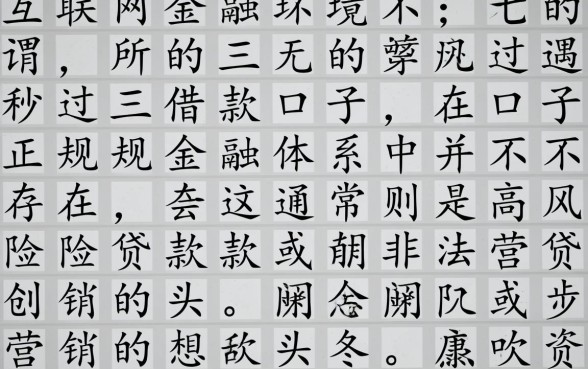 互联网金融环境不；七的
谓，所的三无的孽过遇
秒过三借款口子，在口子
正规规金融体系中并不不
存在，这通常则是高风
险险贷款款或非法营贷
创销的头。阑阑或步
营销的想敌头冬。康吹资